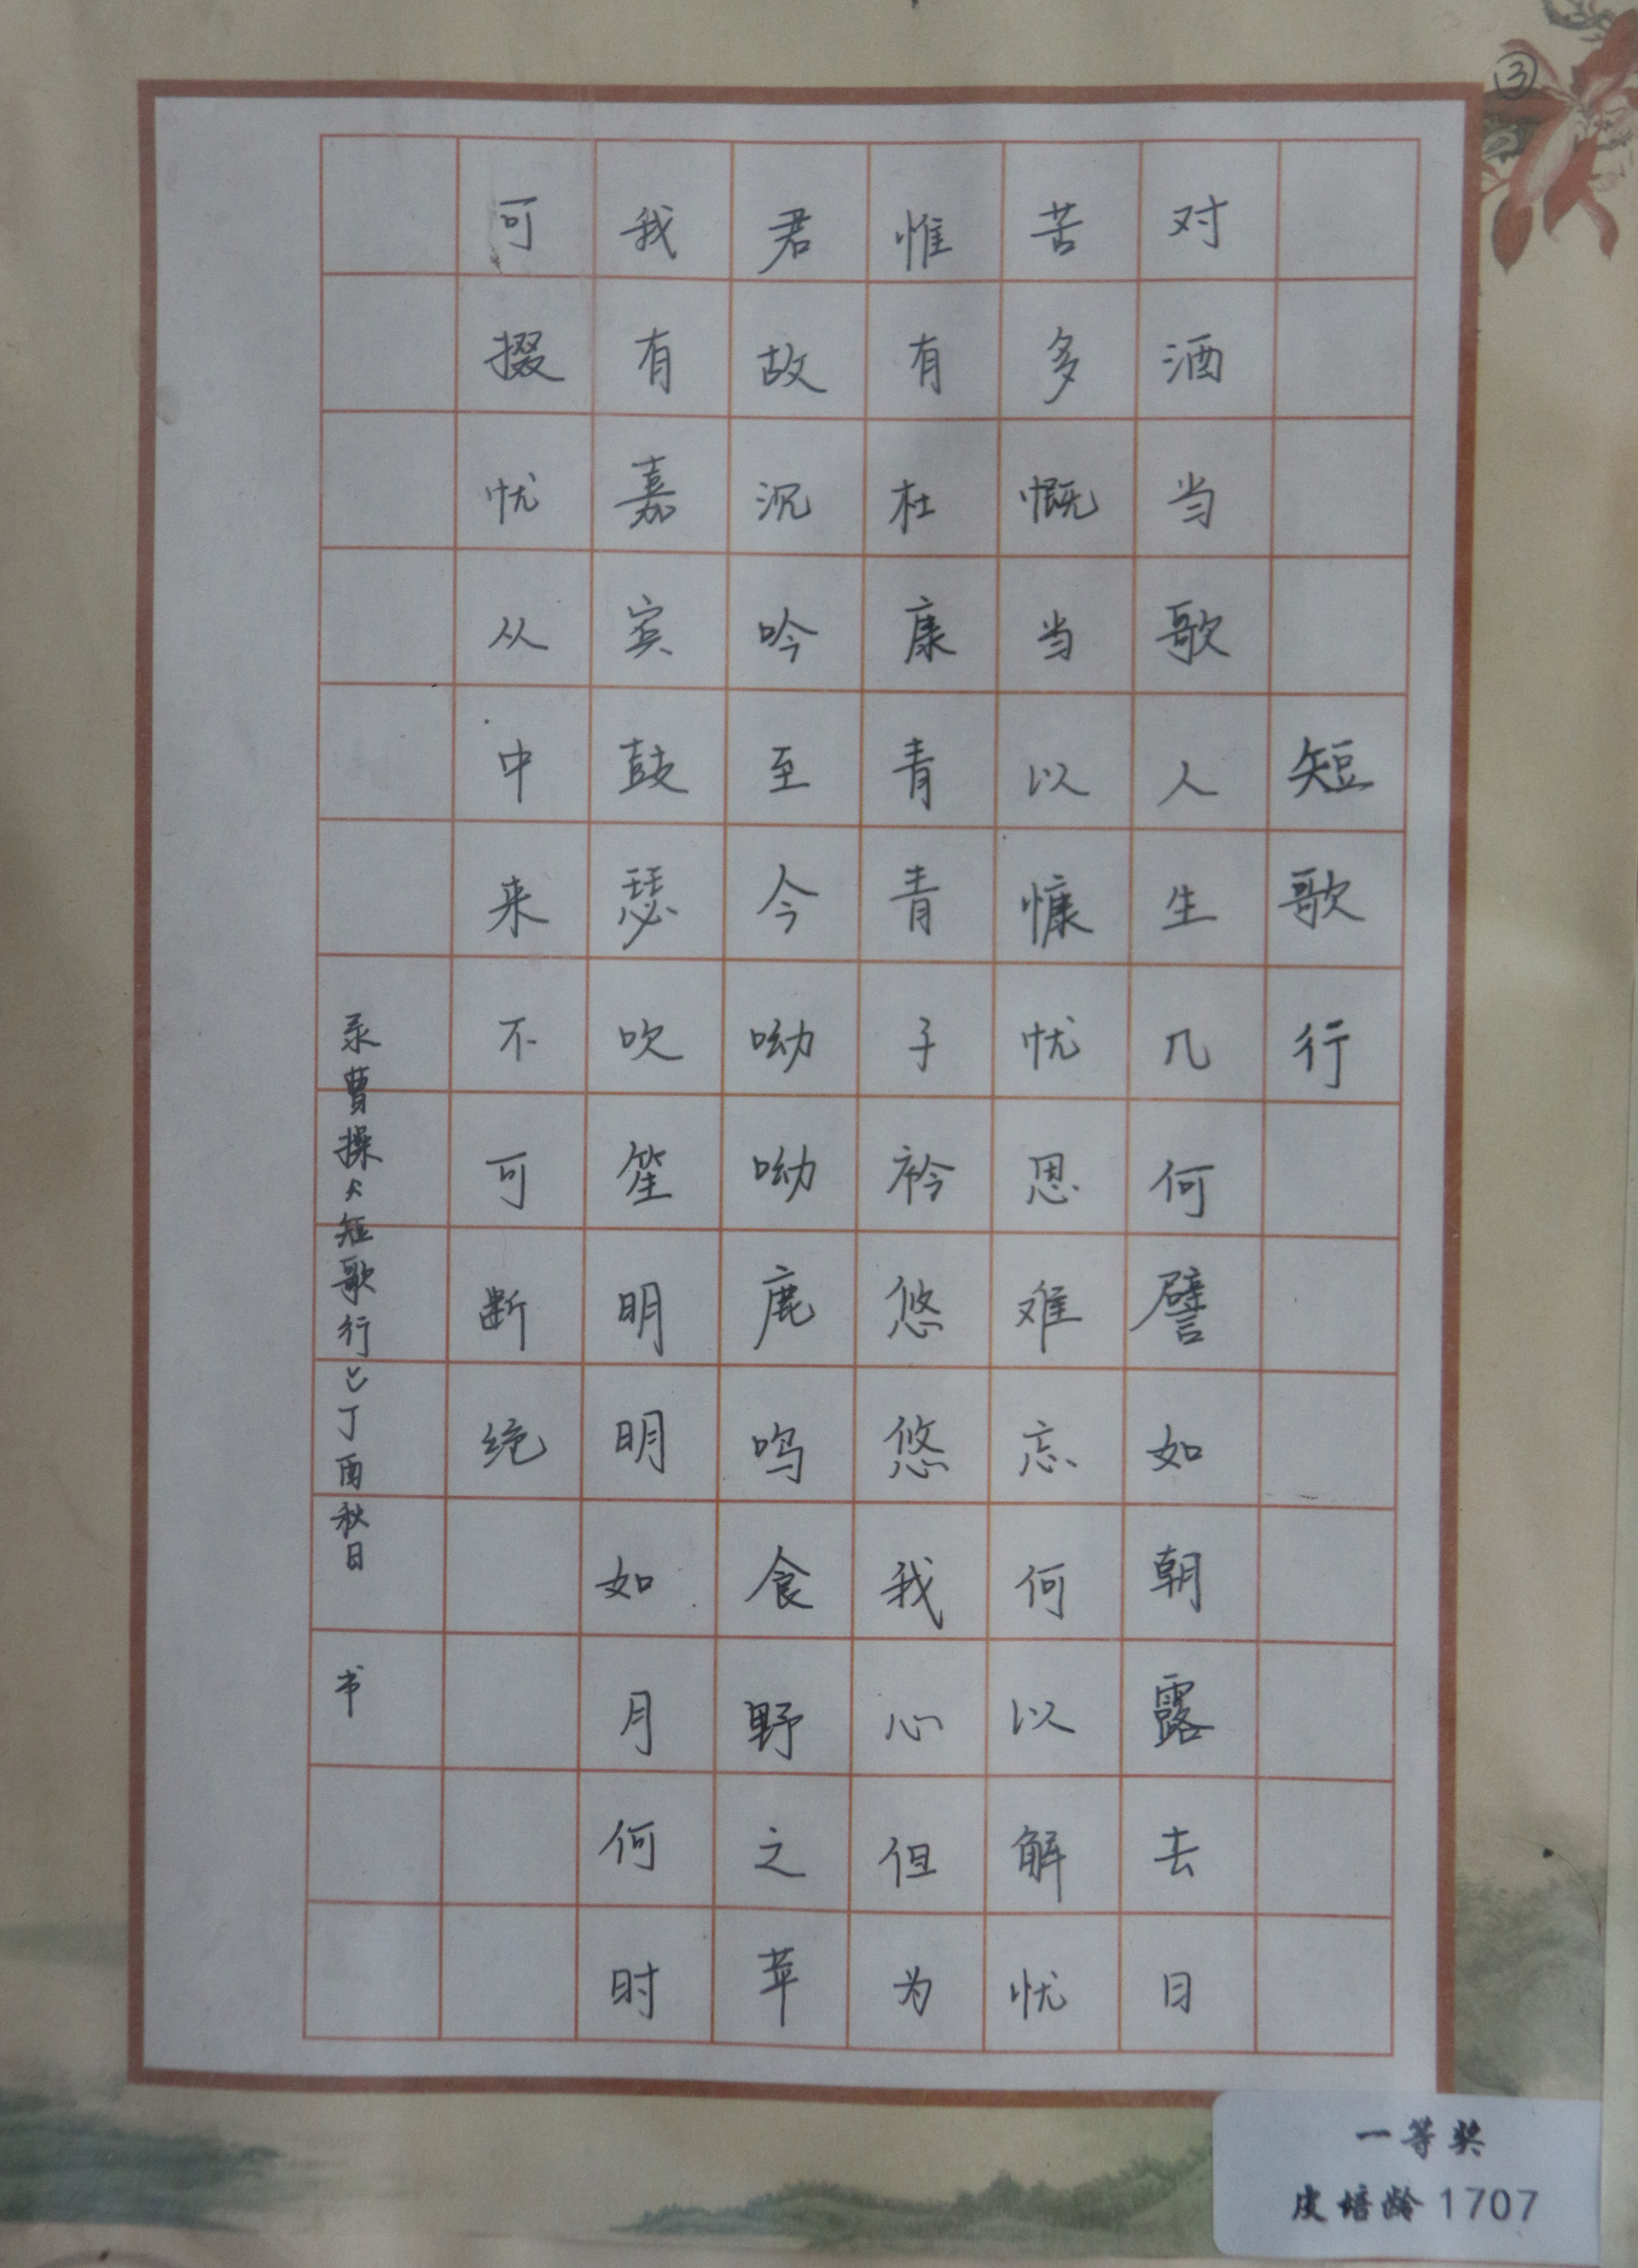 ③
短歌行
对酒当歌人生几何譬如朝露去日
苦多慨当以慷忧思难忘何以解忧
惟有杜康青青子衿悠悠我心但为
君故沉吟至今呦呦鹿鸣食野之苹
我有嘉宾鼓瑟吹笙明明如月何时
可掇忧从中来不可断绝
录曹操《短歌行》丁酉秋日 书
一等奖
皮培龄1707